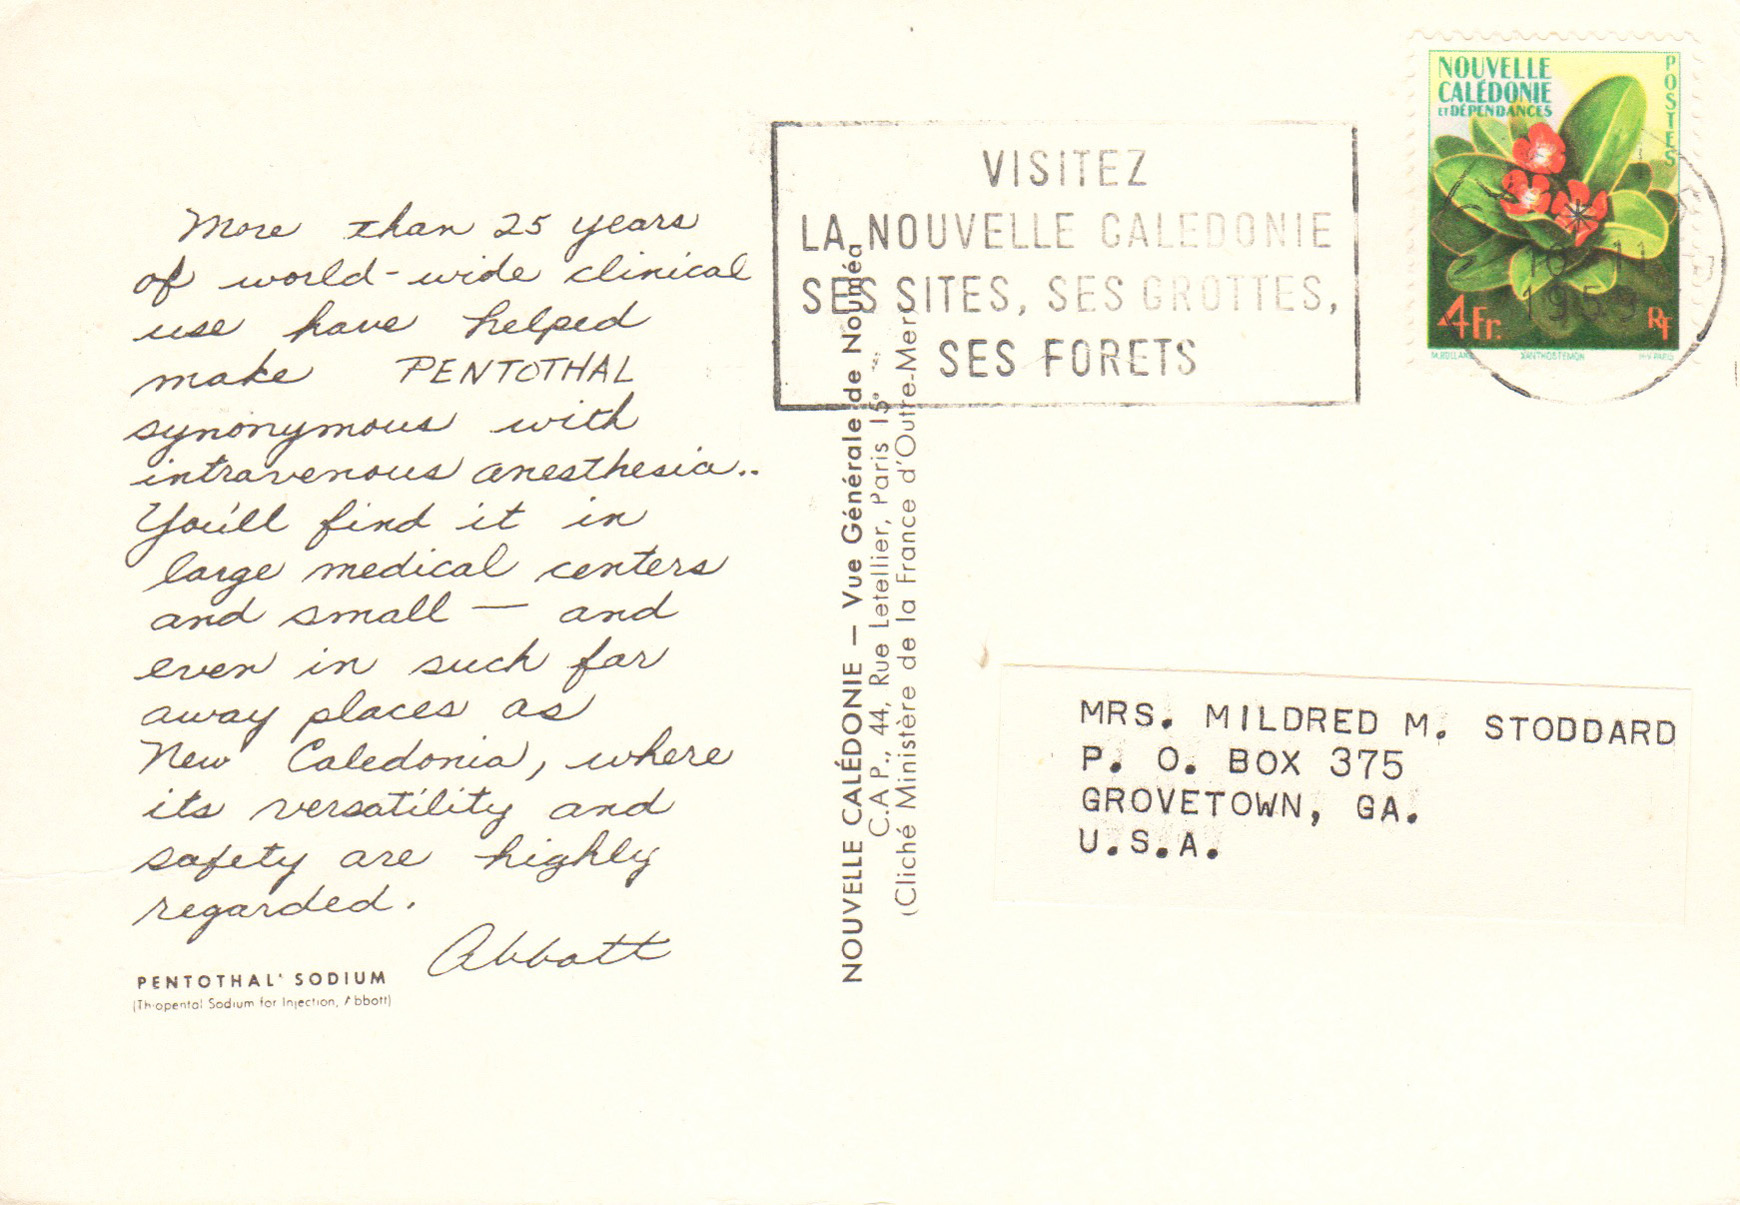 More than 25 years
of world-wide clinical
use have helped
make PENTOTHAL
synonymous with
intravenous anesthesia..
You'll find it in
large medical centers
and small — and
even in such far
away places as
New Caledonia, where
its versatility and
safety are highly
regarded.
Abbott
PENTOTHAL' SODIUM
(Thiopental Sodium for Injection, Abbott)
NOUVELLE CALÉDONIE — Vue Générale de Nouméa
C.A.P., 44, Rue Letellier, Paris 15e
(Cliché Ministère de la France d'Outre-Mer)
VISITEZ
LA NOUVELLE CALEDONIE
SES SITES, SES GROTTES,
SES FORETS
NOUVELLE
CALÉDONIE
ET DÉPENDANCES
POSTES
18 11
1959
4Fr.
RF
M.ROLLAND XANTHOSTEMON H-V PARIS
MRS. MILDRED M. STODDARD
P. O. BOX 375
GROVETOWN, GA.
U.S.A.